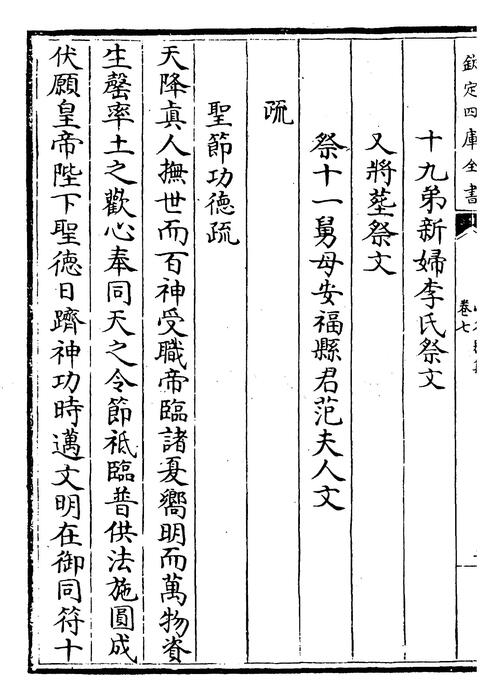 欽定四庫全書
卷七
十九弟新婦李氏祭文
又將塟祭文
祭十一舅母安福縣君范夫人文
疏
聖節功德疏
天降真人撫世而百神受職帝臨諸夏嚮明而萬物資
生罄率土之歡心奉同天之令節祗臨普供法施圓成
伏願皇帝陛下聖德日躋神功時邁文明在御同符十